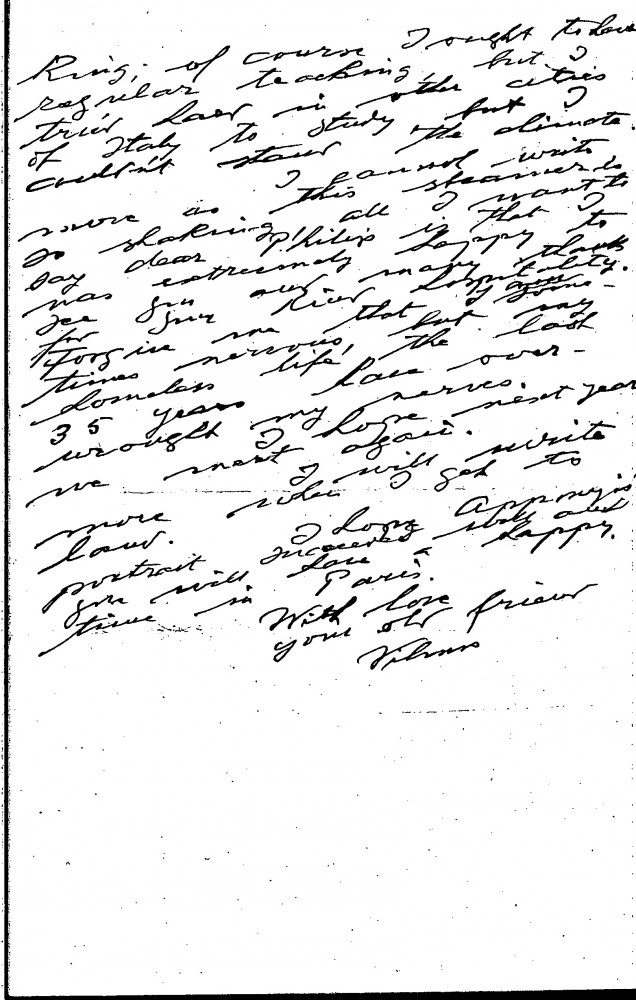 King; of course I ought to have
regular teaching, but I
tried hard in other cities
of Italy to study but I
couldn't stand the climate.
I cannot write
more as this steamer is
so shaking all I want to
say dear Philip is that I
was extremely happy to
see you and many thanks
for your kind hospitality.
Forgive me that I am some-
times nervous, but my
homeless life, the last
35 years have over-
wrought my nerves.
I hope next year
we meet again.
I will write
more when I get to
land.
I hope Apponyi's
portrait succeeded well and
you will have a happy
time in Paris.
With love
your old friend
Vilmos